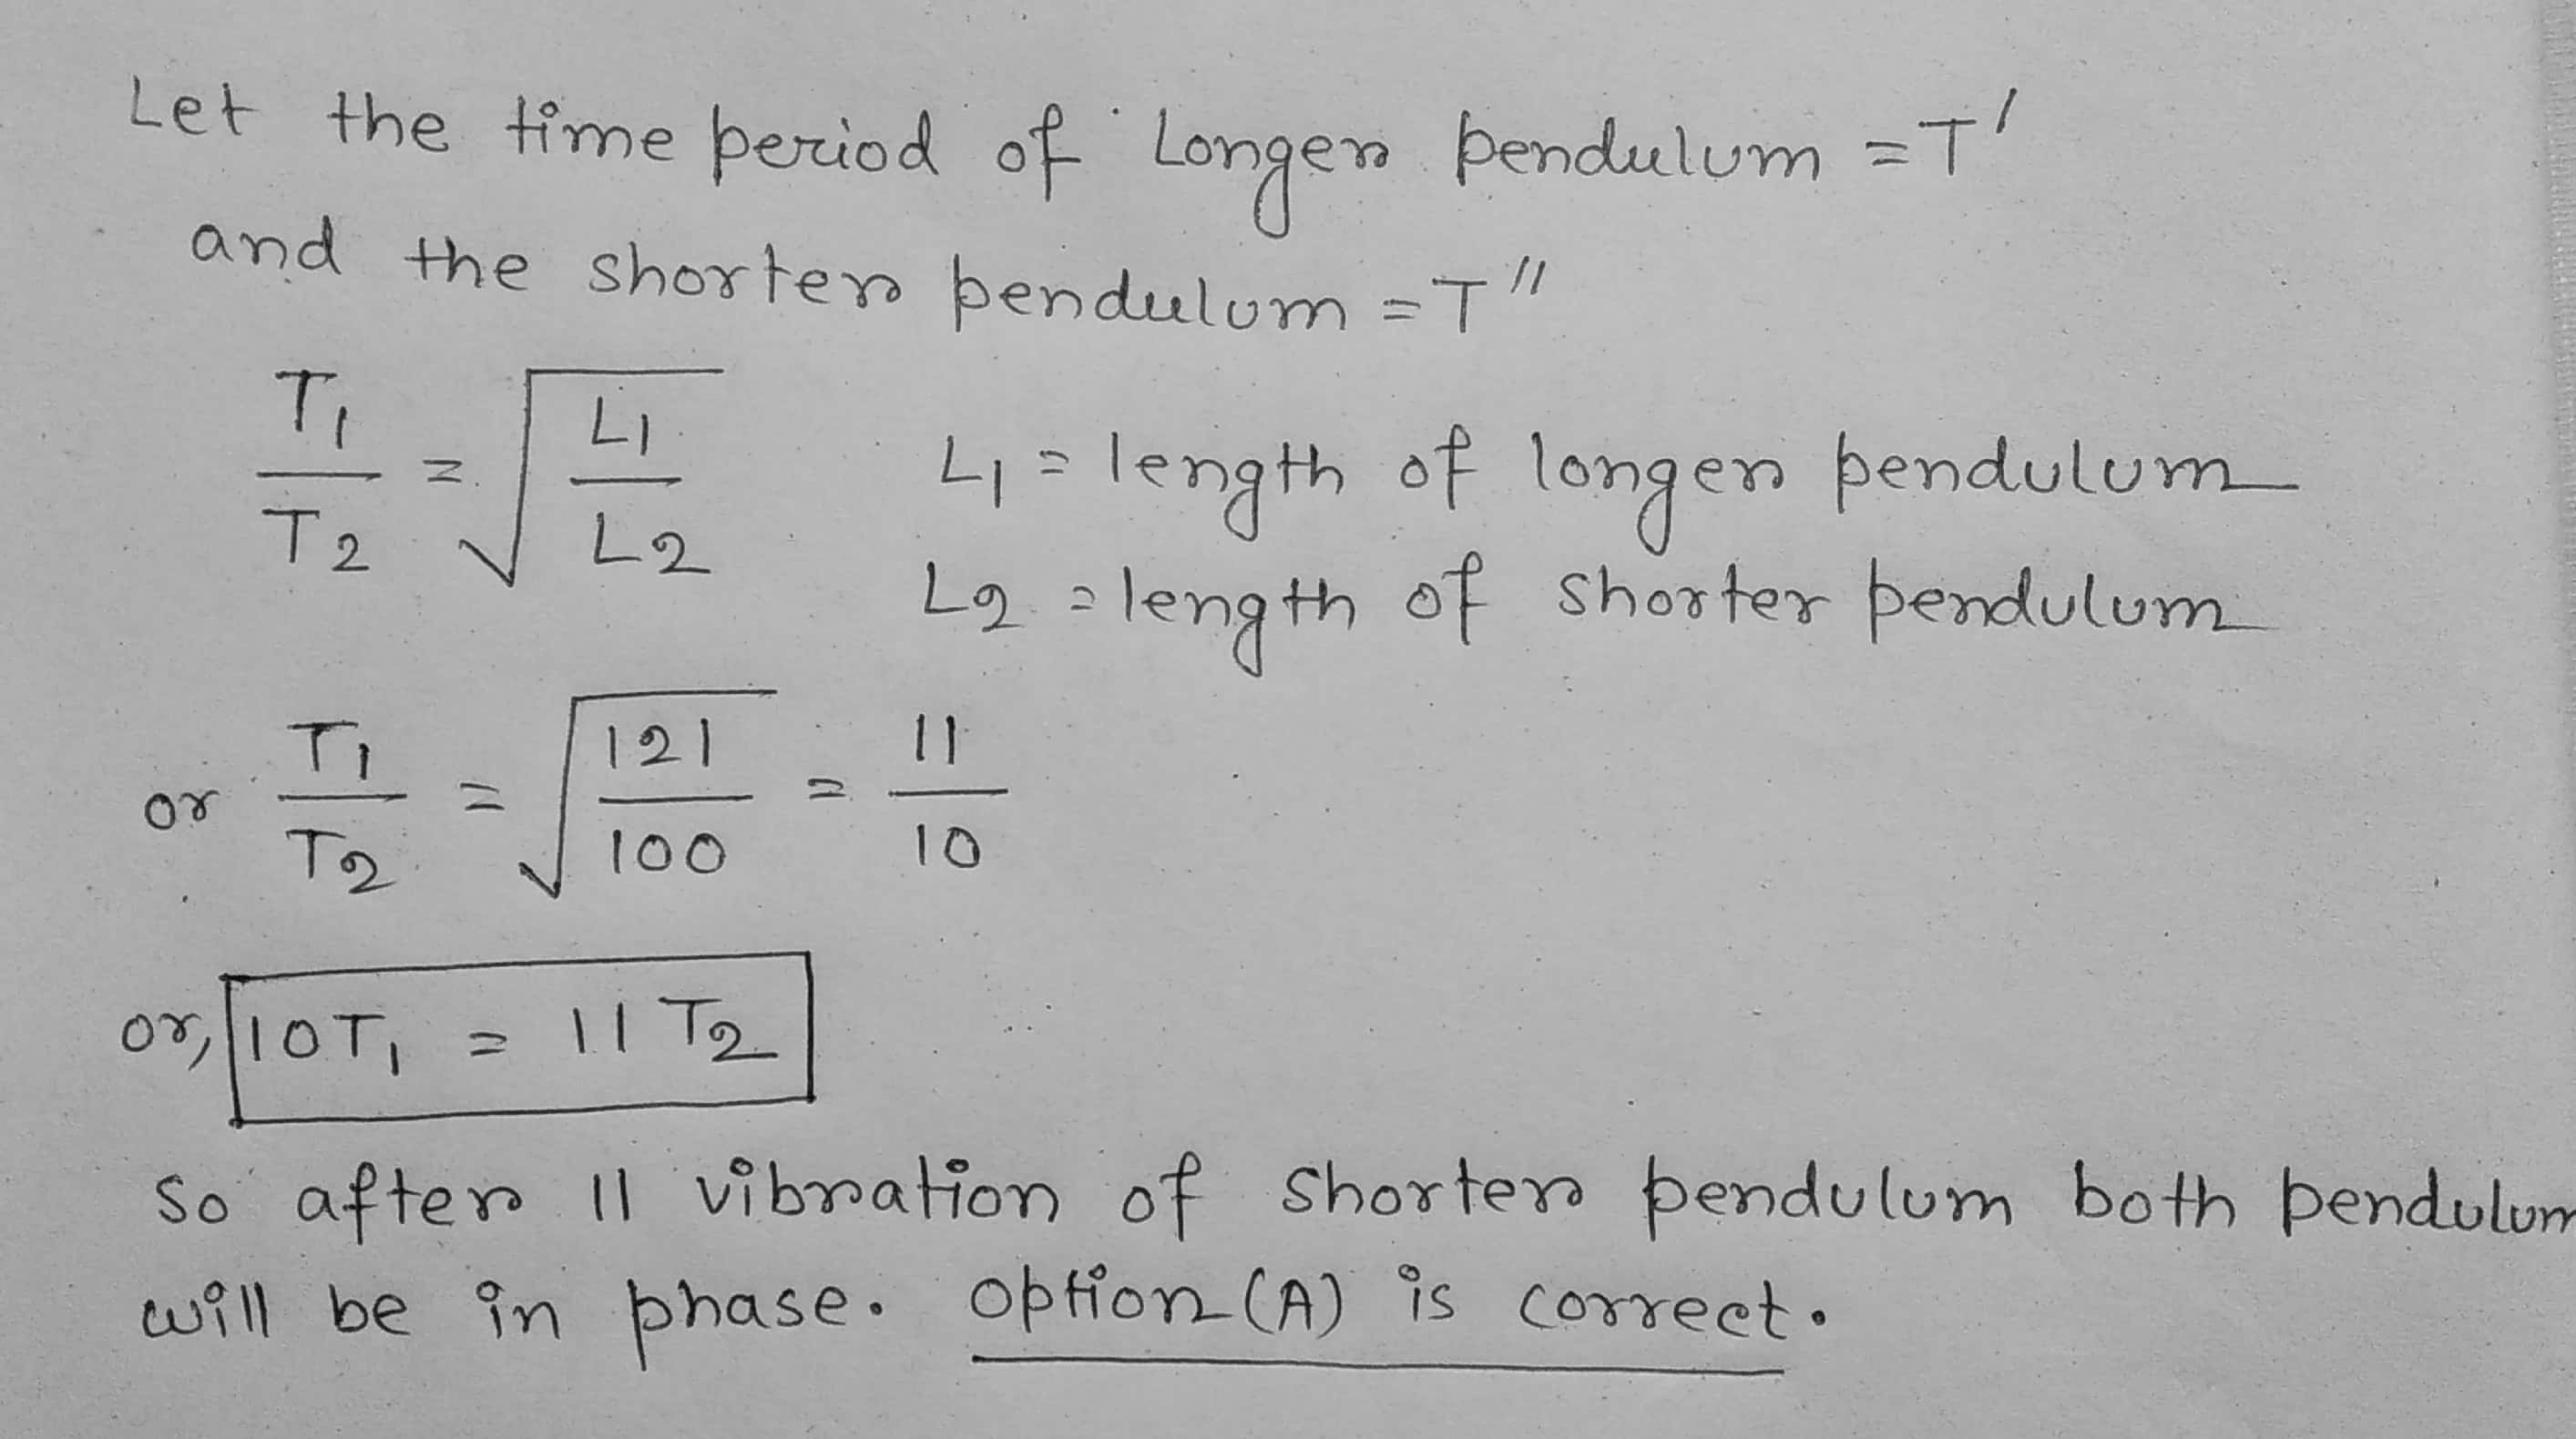 Let the time period of Longer pendulum = T'
and the shorter pendulum = T''
T1/T2 = √(L1/L2) L1 = length of longer pendulum
L2 = length of shorter pendulum
or T1/T2 = √(121/100) = 11/10
or, 10T1 = 11T2
So after 11 vibration of shorter pendulum both pendulum
will be in phase. Option (A) is correct.